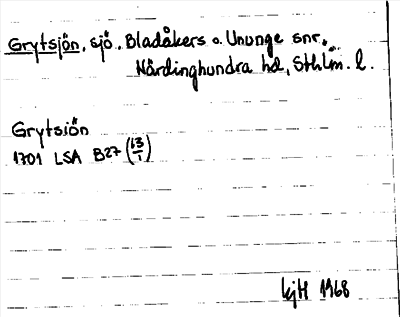 Grytsjön, sjö, Bladåkers o. Ununge snr,
Närdinghundra hd, Sthlm. l.
Grytsiön
1701 LSA B27 (13/1)
kjH 1968